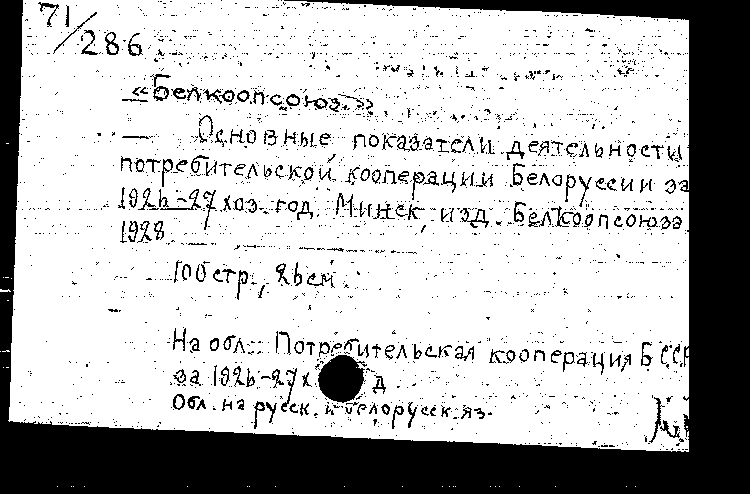 71/286
«Белкоопсоюз.»
— Основные показатели деятельности
потребительской кооперации Белоруссии за
1926-27 хоз. год. Минск, изд. Белкоопсоюза
1928
106 стр., 26 см
На обл.: Потребительская кооперация БССР
за 1926-27 х д
Обл. на русск. и белорусск. яз.